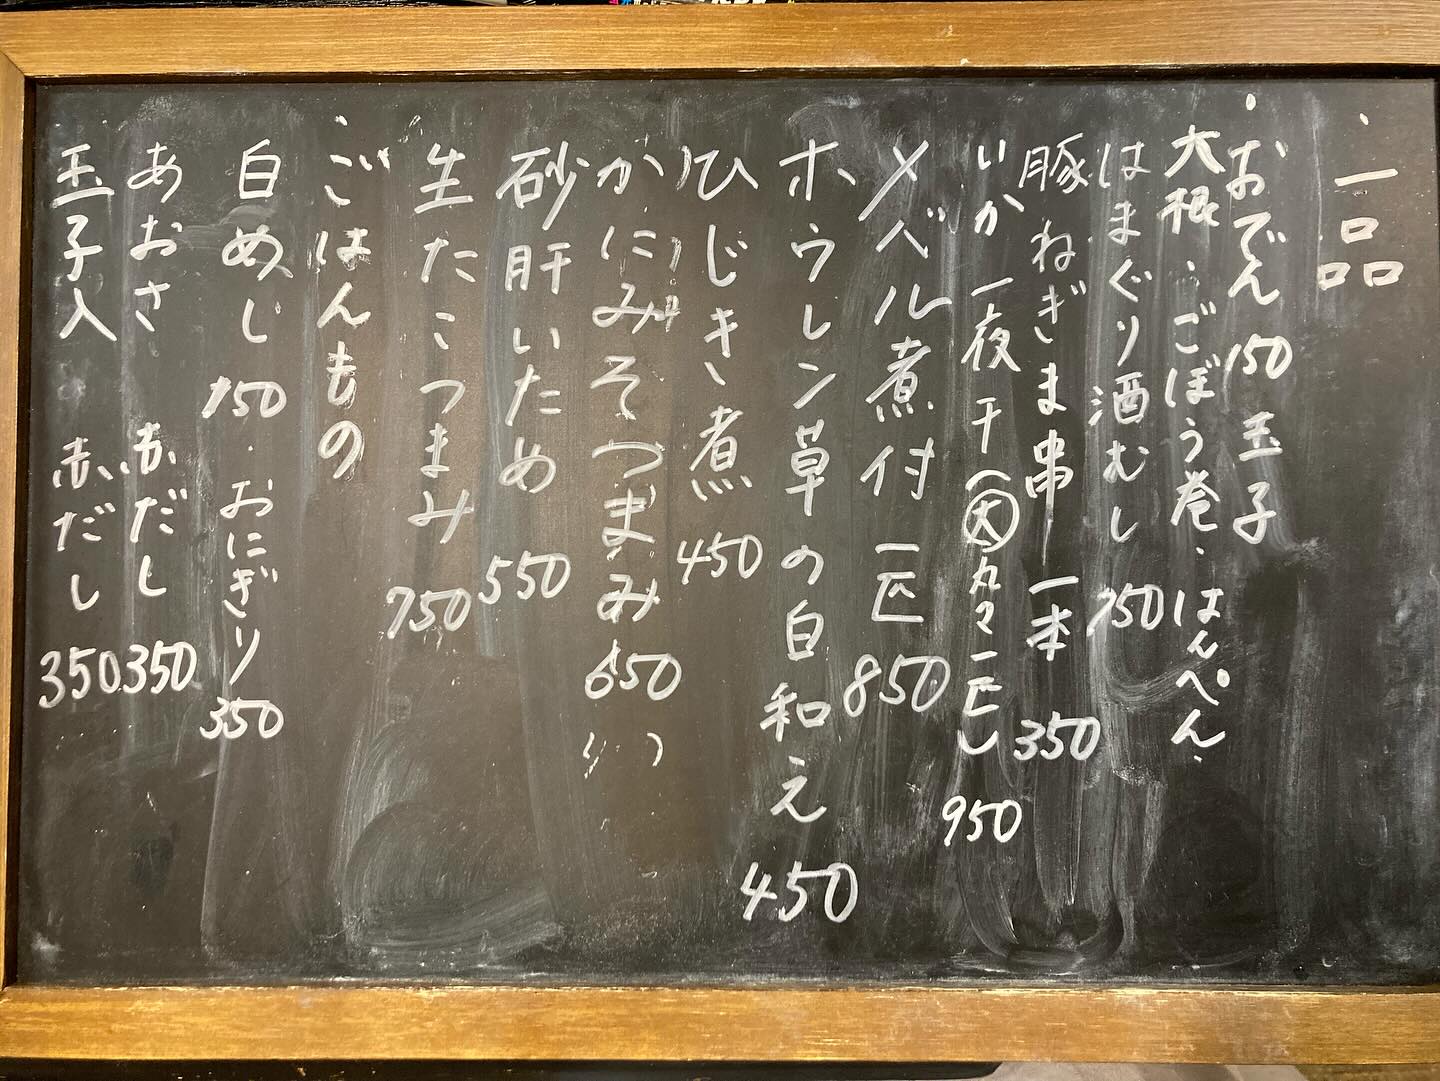 ・一品
・おでん 150 玉子
大根・ごぼう巻・はんぺん・
はまぐり酒むし 750
豚ねぎま串 一本 350
いか一夜干(大)丸々一匹 950
メバル煮付 一匹 850
ホウレン草の白和え 450
ひじき煮 450
かにみそつまみ 650
砂肝いため 550
生たこつまみ 750
・ごはんもの
白めし 150・おにぎり 350
あおさ 赤だし 350
玉子入 赤だし 350